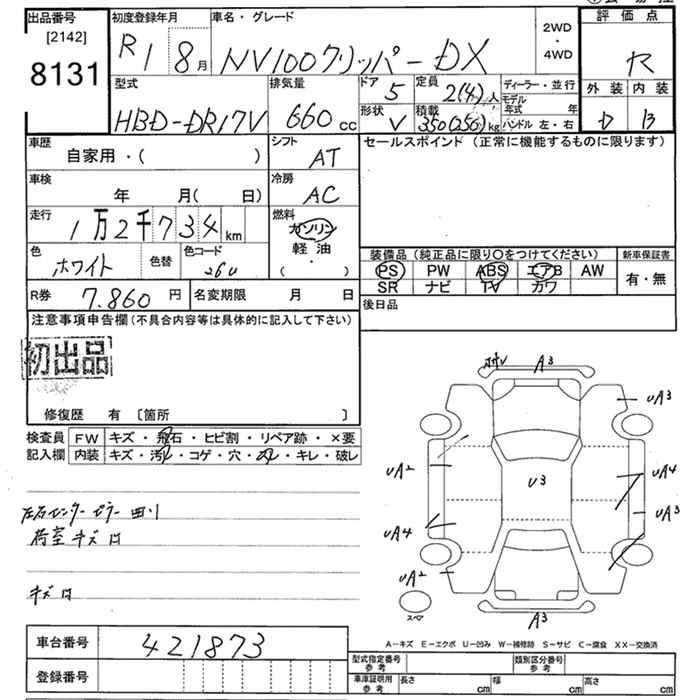 出品番号
[2142]
8131
初度登録年月
R1 8月
車名・グレード
NV100クリッパーDX
2WD
・
4WD
評価点
R
外装 内装
D B
型式
HBD-DR17V
排気量
660cc
ドア 5
形状 V
定員 2(4)人
積載 350(250)kg
ディーラー・並行
モデル年式 年
ハンドル 左・右
車歴
自家用・( )
シフト
AT
セールスポイント (正常に機能するものに限ります)
車検
年 月( 日)
冷房
AC
走行
1万2千734km
燃料
ガソリン
軽油
( ・ )
色
ホワイト
色替
色コード
26U
装備品(純正品に限り〇をつけてください)
PS PW ABS エアB AW
SR ナビ TV カワ
新車保証書
有・無
R券
7.860円
名変期限 月 日
後日品
注意事項申告欄(不具合内容等は具体的に記入して下さい)
初出品
修復歴 有 〔箇所 〕
検査員
記入欄
FW キズ・飛石・ヒビ割・リペア跡・×要
内装 キズ・汚レ・コゲ・穴・スレ・キレ・破レ
左右センターピラー凹リ
荷室キズ凹
キズ凹
A3
UA3
UA2
U3
UA4
UA4
UA3
UA2
スペア
A3
A-キズ E-エクボ U-凹み W-補修跡 S-サビ C-腐食 XX-交換済
車台番号
421873
登録番号
型式指定番号
参考
類別区分番号
参考
車庫証明用
参考
長さ cm
幅 cm
高さ cm